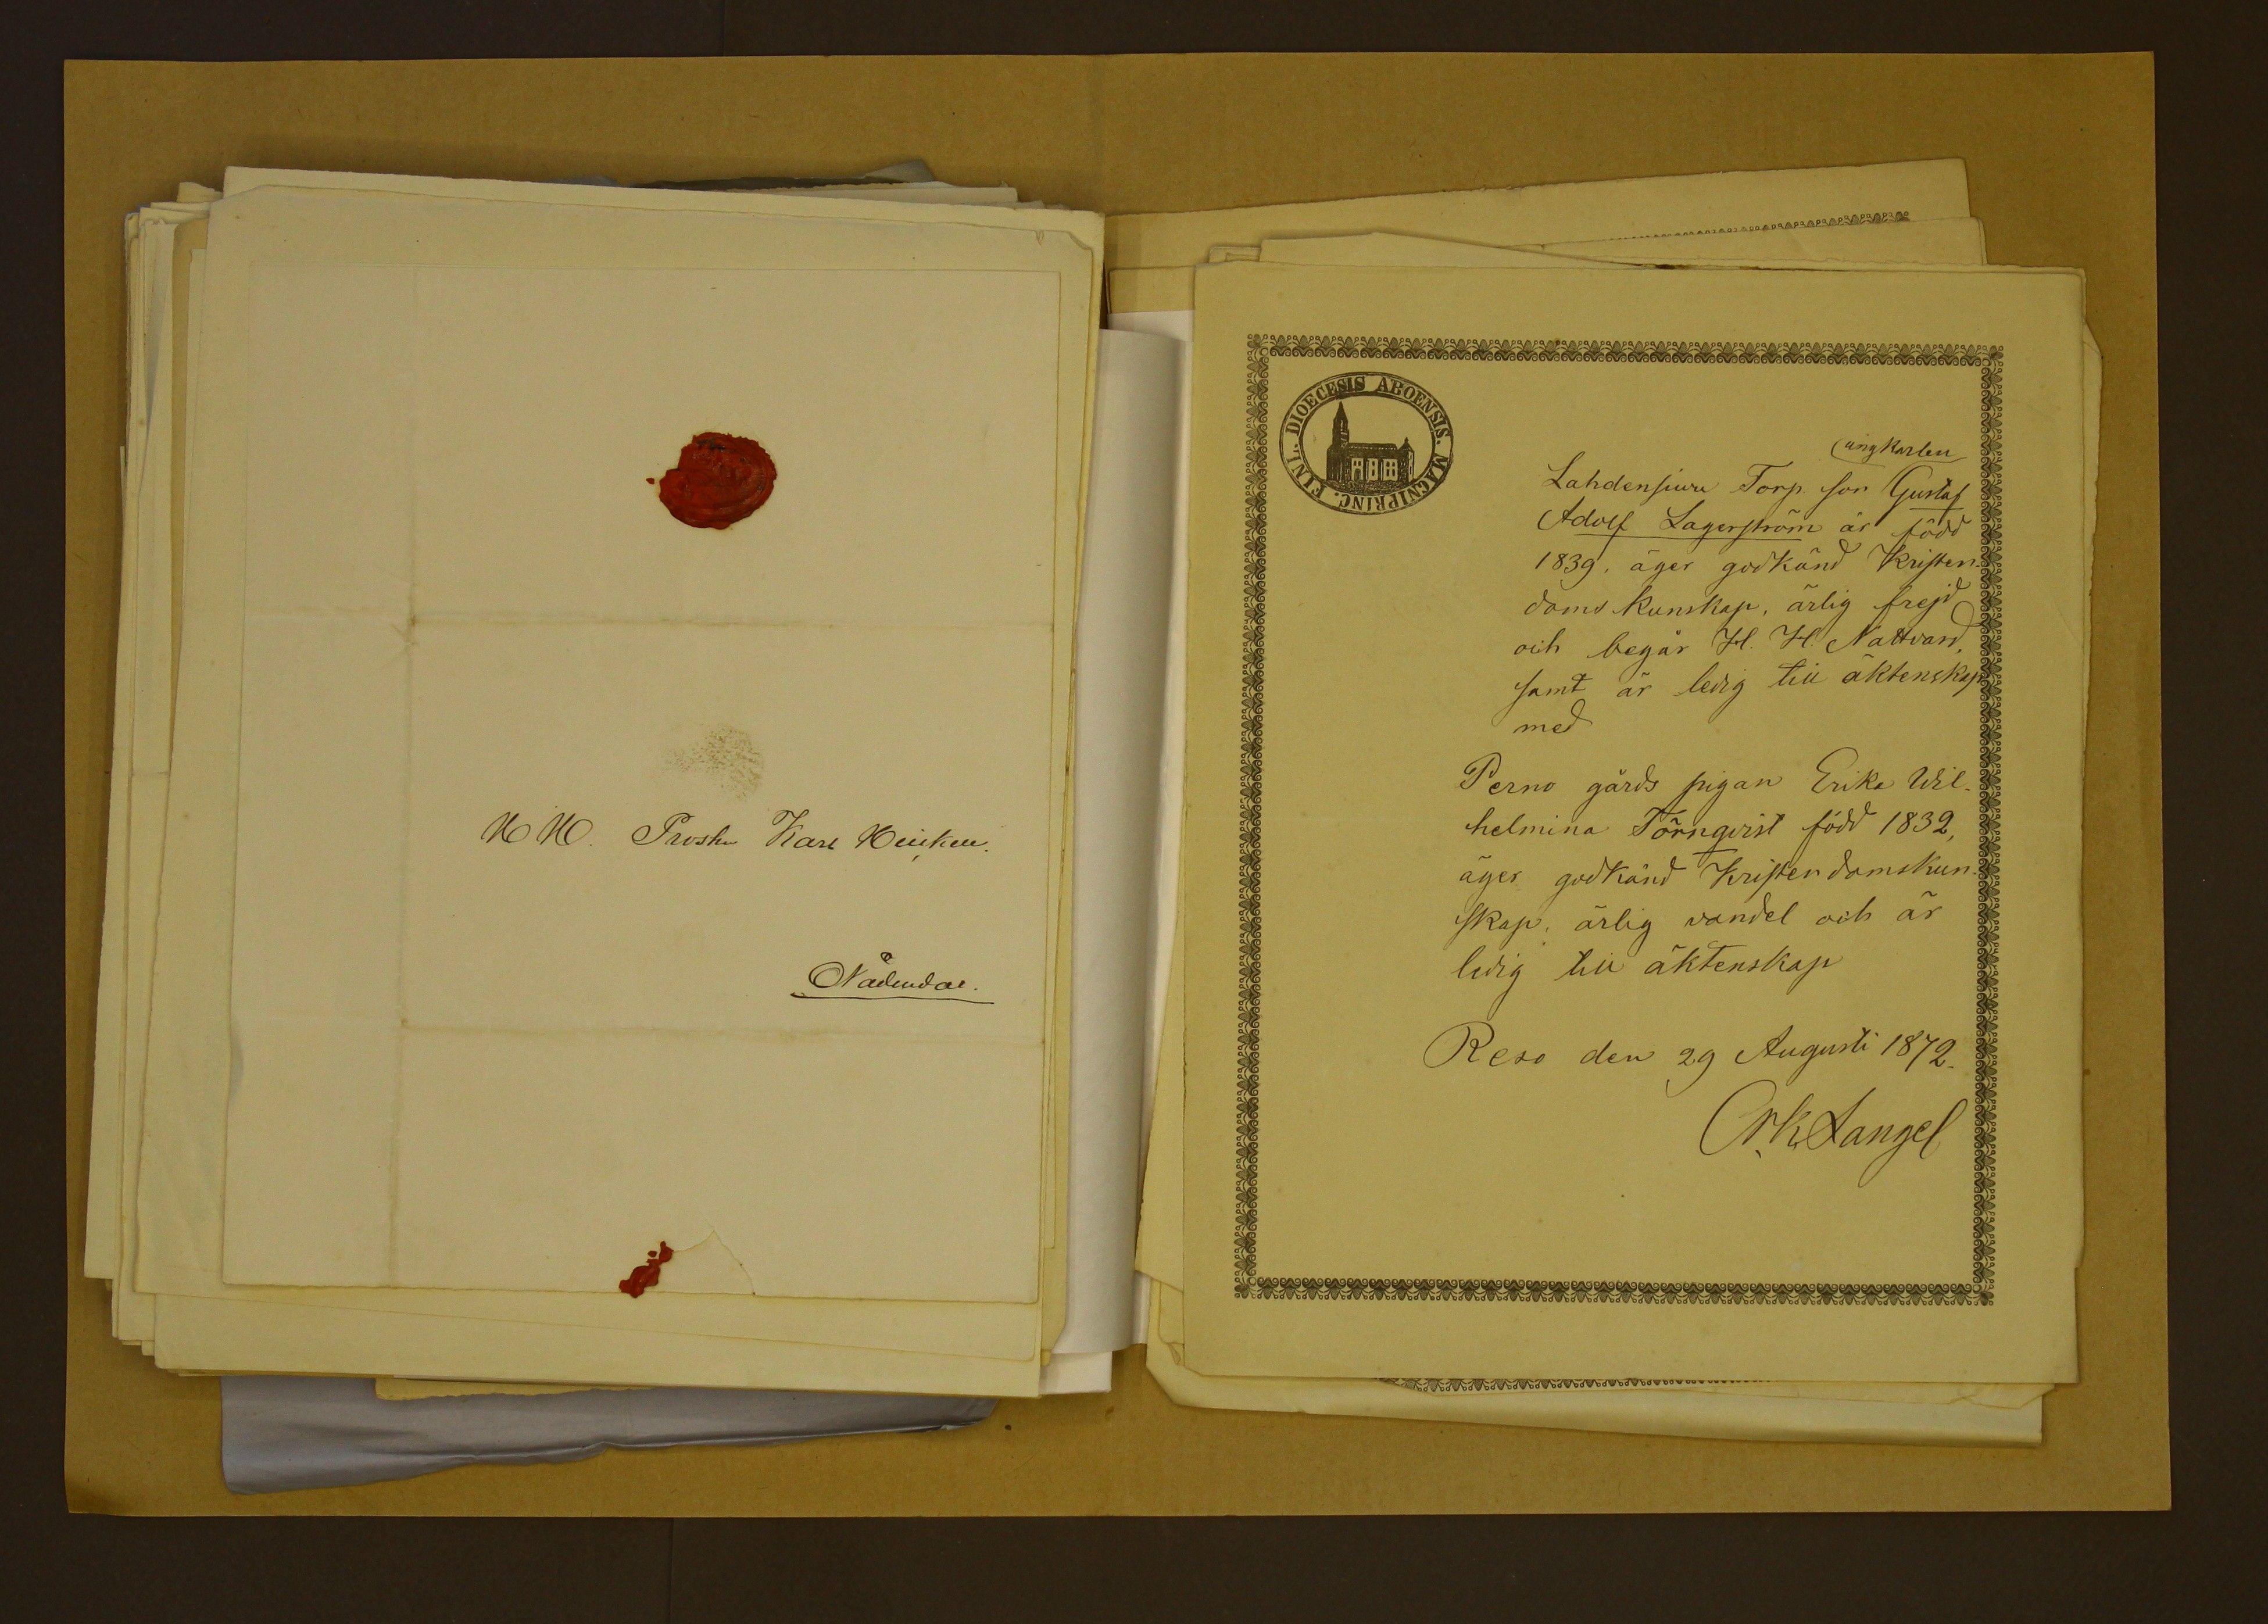 H H. Prosten Karl Heickell.
Nådendal.
DIOECESIS ABOENSIS. MAGNIPRINC. FINL.
ungkarlen
Torp. son Gustaf
Adolf Lagerström är född
1839, äger godkänd Kristen-
doms kunskap, ärlig frejd
och begår H. H. Nattvard,
samt är ledig till äktenskap
med
Perno gårds pigan Erika Wil-
helmina Törnqvist född 1832,
äger godkänd Kristendomskun-
skap, ärlig vandel och är
ledig till äktenskap
Reso den 29 Augusti 1872.
Langel